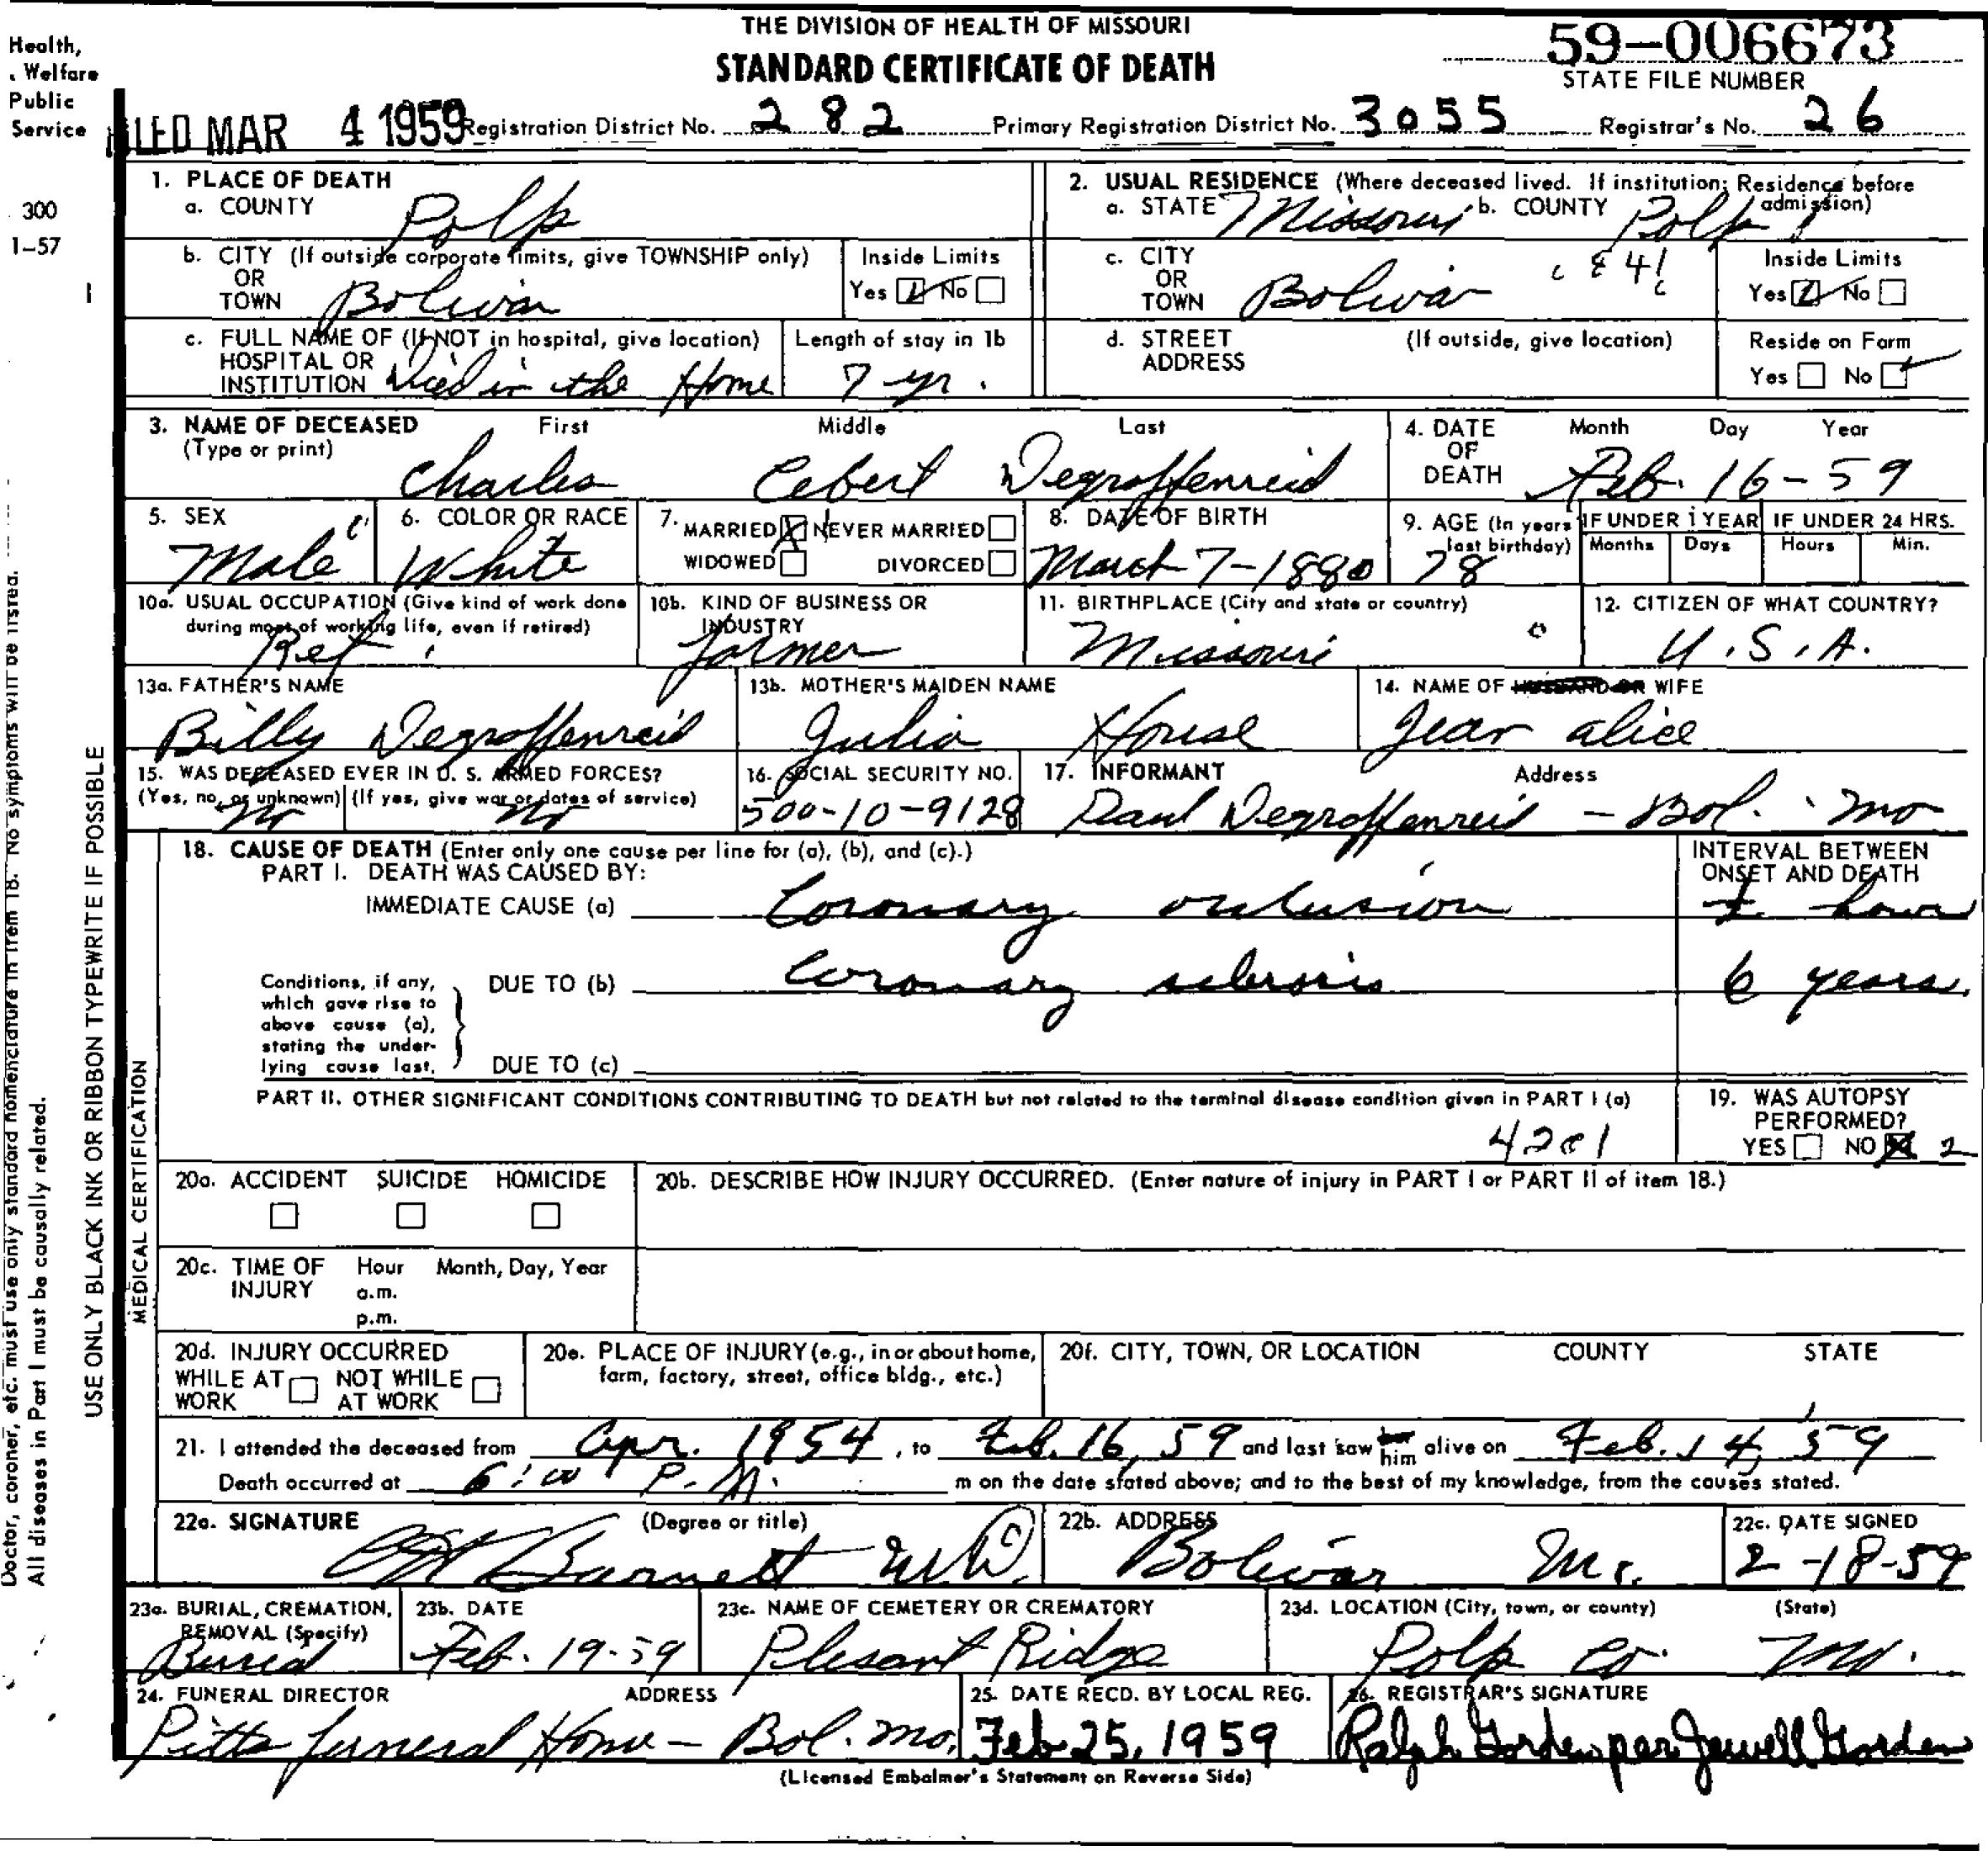 THE DIVISION OF HEALTH OF MISSOURI
STANDARD CERTIFICATE OF DEATH
59-006673
STATE FILE NUMBER
Health,
Welfare
Public
Service
300
1-57
LED MAR 4 1959 Registration District No. 282 Primary Registration District No. 3055 Registrar's No. 26
1. PLACE OF DEATH
a. COUNTY Polk
2. USUAL RESIDENCE (Where deceased lived. If institution; Residence before admission)
a. STATE Missouri b. COUNTY Polk
b. CITY (If outside corporate limits, give TOWNSHIP only) Inside Limits
OR
TOWN Bolivar Yes No
c. CITY Inside Limits
OR
TOWN Bolivar Yes No
c. FULL NAME OF (If NOT in hospital, give location) Length of stay in 1b
HOSPITAL OR
INSTITUTION Died in the Home 7 yr.
d. STREET (If outside, give location) Reside on Farm
ADDRESS Yes No
3. NAME OF DECEASED First Middle Last
(Type or print)
Charles Cebert Degraffenreid
4. DATE OF DEATH Month Day Year
Feb. 16-59
5. SEX
Male
6. COLOR OR RACE
White
7. MARRIED X NEVER MARRIED
WIDOWED DIVORCED
8. DATE OF BIRTH
March 7-1880
9. AGE (In years last birthday) 78
IF UNDER 1 YEAR IF UNDER 24 HRS.
Months Days Hours Min.
10a. USUAL OCCUPATION (Give kind of work done during most of working life, even if retired)
Ret.
10b. KIND OF BUSINESS OR INDUSTRY
Farmer
11. BIRTHPLACE (City and state or country)
Missouri
12. CITIZEN OF WHAT COUNTRY?
U.S.A.
13a. FATHER'S NAME
Billy Degraffenreid
13b. MOTHER'S MAIDEN NAME
Julia House
14. NAME OF HUSBAND OR WIFE
Jean Alice
15. WAS DECEASED EVER IN U. S. ARMED FORCES?
(Yes, no, or unknown) (If yes, give war or dates of service)
No No
16. SOCIAL SECURITY NO.
500-10-9128
17. INFORMANT Address
Paul Degraffenreid - Bol. Mo
18. CAUSE OF DEATH (Enter only one cause per line for (a), (b), and (c).)
PART I. DEATH WAS CAUSED BY:
INTERVAL BETWEEN ONSET AND DEATH
IMMEDIATE CAUSE (a) Coronary occlusion hour
Conditions, if any, which gave rise to above cause (a), stating the underlying cause last.
DUE TO (b) Coronary sclerosis 6 years.
DUE TO (c)
PART II. OTHER SIGNIFICANT CONDITIONS CONTRIBUTING TO DEATH but not related to the terminal disease condition given in PART I (a)
4201
19. WAS AUTOPSY PERFORMED?
YES NO X 2
20a. ACCIDENT SUICIDE HOMICIDE
20b. DESCRIBE HOW INJURY OCCURRED. (Enter nature of injury in PART I or PART II of item 18.)
20c. TIME OF INJURY Hour Month, Day, Year
a.m.
p.m.
20d. INJURY OCCURRED
WHILE AT WORK NOT WHILE AT WORK
20e. PLACE OF INJURY (e.g., in or about home, farm, factory, street, office bldg., etc.)
20f. CITY, TOWN, OR LOCATION COUNTY STATE
21. I attended the deceased from Apr. 1954, to Feb. 16, 59 and last saw her him alive on Feb. 14, 59
Death occurred at 6:00 P.M. m on the date stated above; and to the best of my knowledge, from the causes stated.
22a. SIGNATURE (Degree or title)
Barnett M.D.
22b. ADDRESS
Bolivar Mo.
22c. DATE SIGNED
2-18-59
23a. BURIAL, CREMATION, REMOVAL (Specify)
Buried
23b. DATE
Feb. 19-59
23c. NAME OF CEMETERY OR CREMATORY
Plesant Ridge
23d. LOCATION (City, town, or county) (State)
Polk Co. Mo.
24. FUNERAL DIRECTOR ADDRESS
Pitts Funeral Home - Bol. Mo.
25. DATE RECD. BY LOCAL REG.
Feb 25, 1959
26. REGISTRAR'S SIGNATURE
Ralph Gorden per Jewell Gorden
(Licensed Embalmer's Statement on Reverse Side)
MEDICAL CERTIFICATION
USE ONLY BLACK INK OR RIBBON TYPEWRITE IF POSSIBLE
Doctor, coroner, etc. must use only standard nomenclature in item 18. No symptoms will be listed.
All diseases in Part I must be causally related.